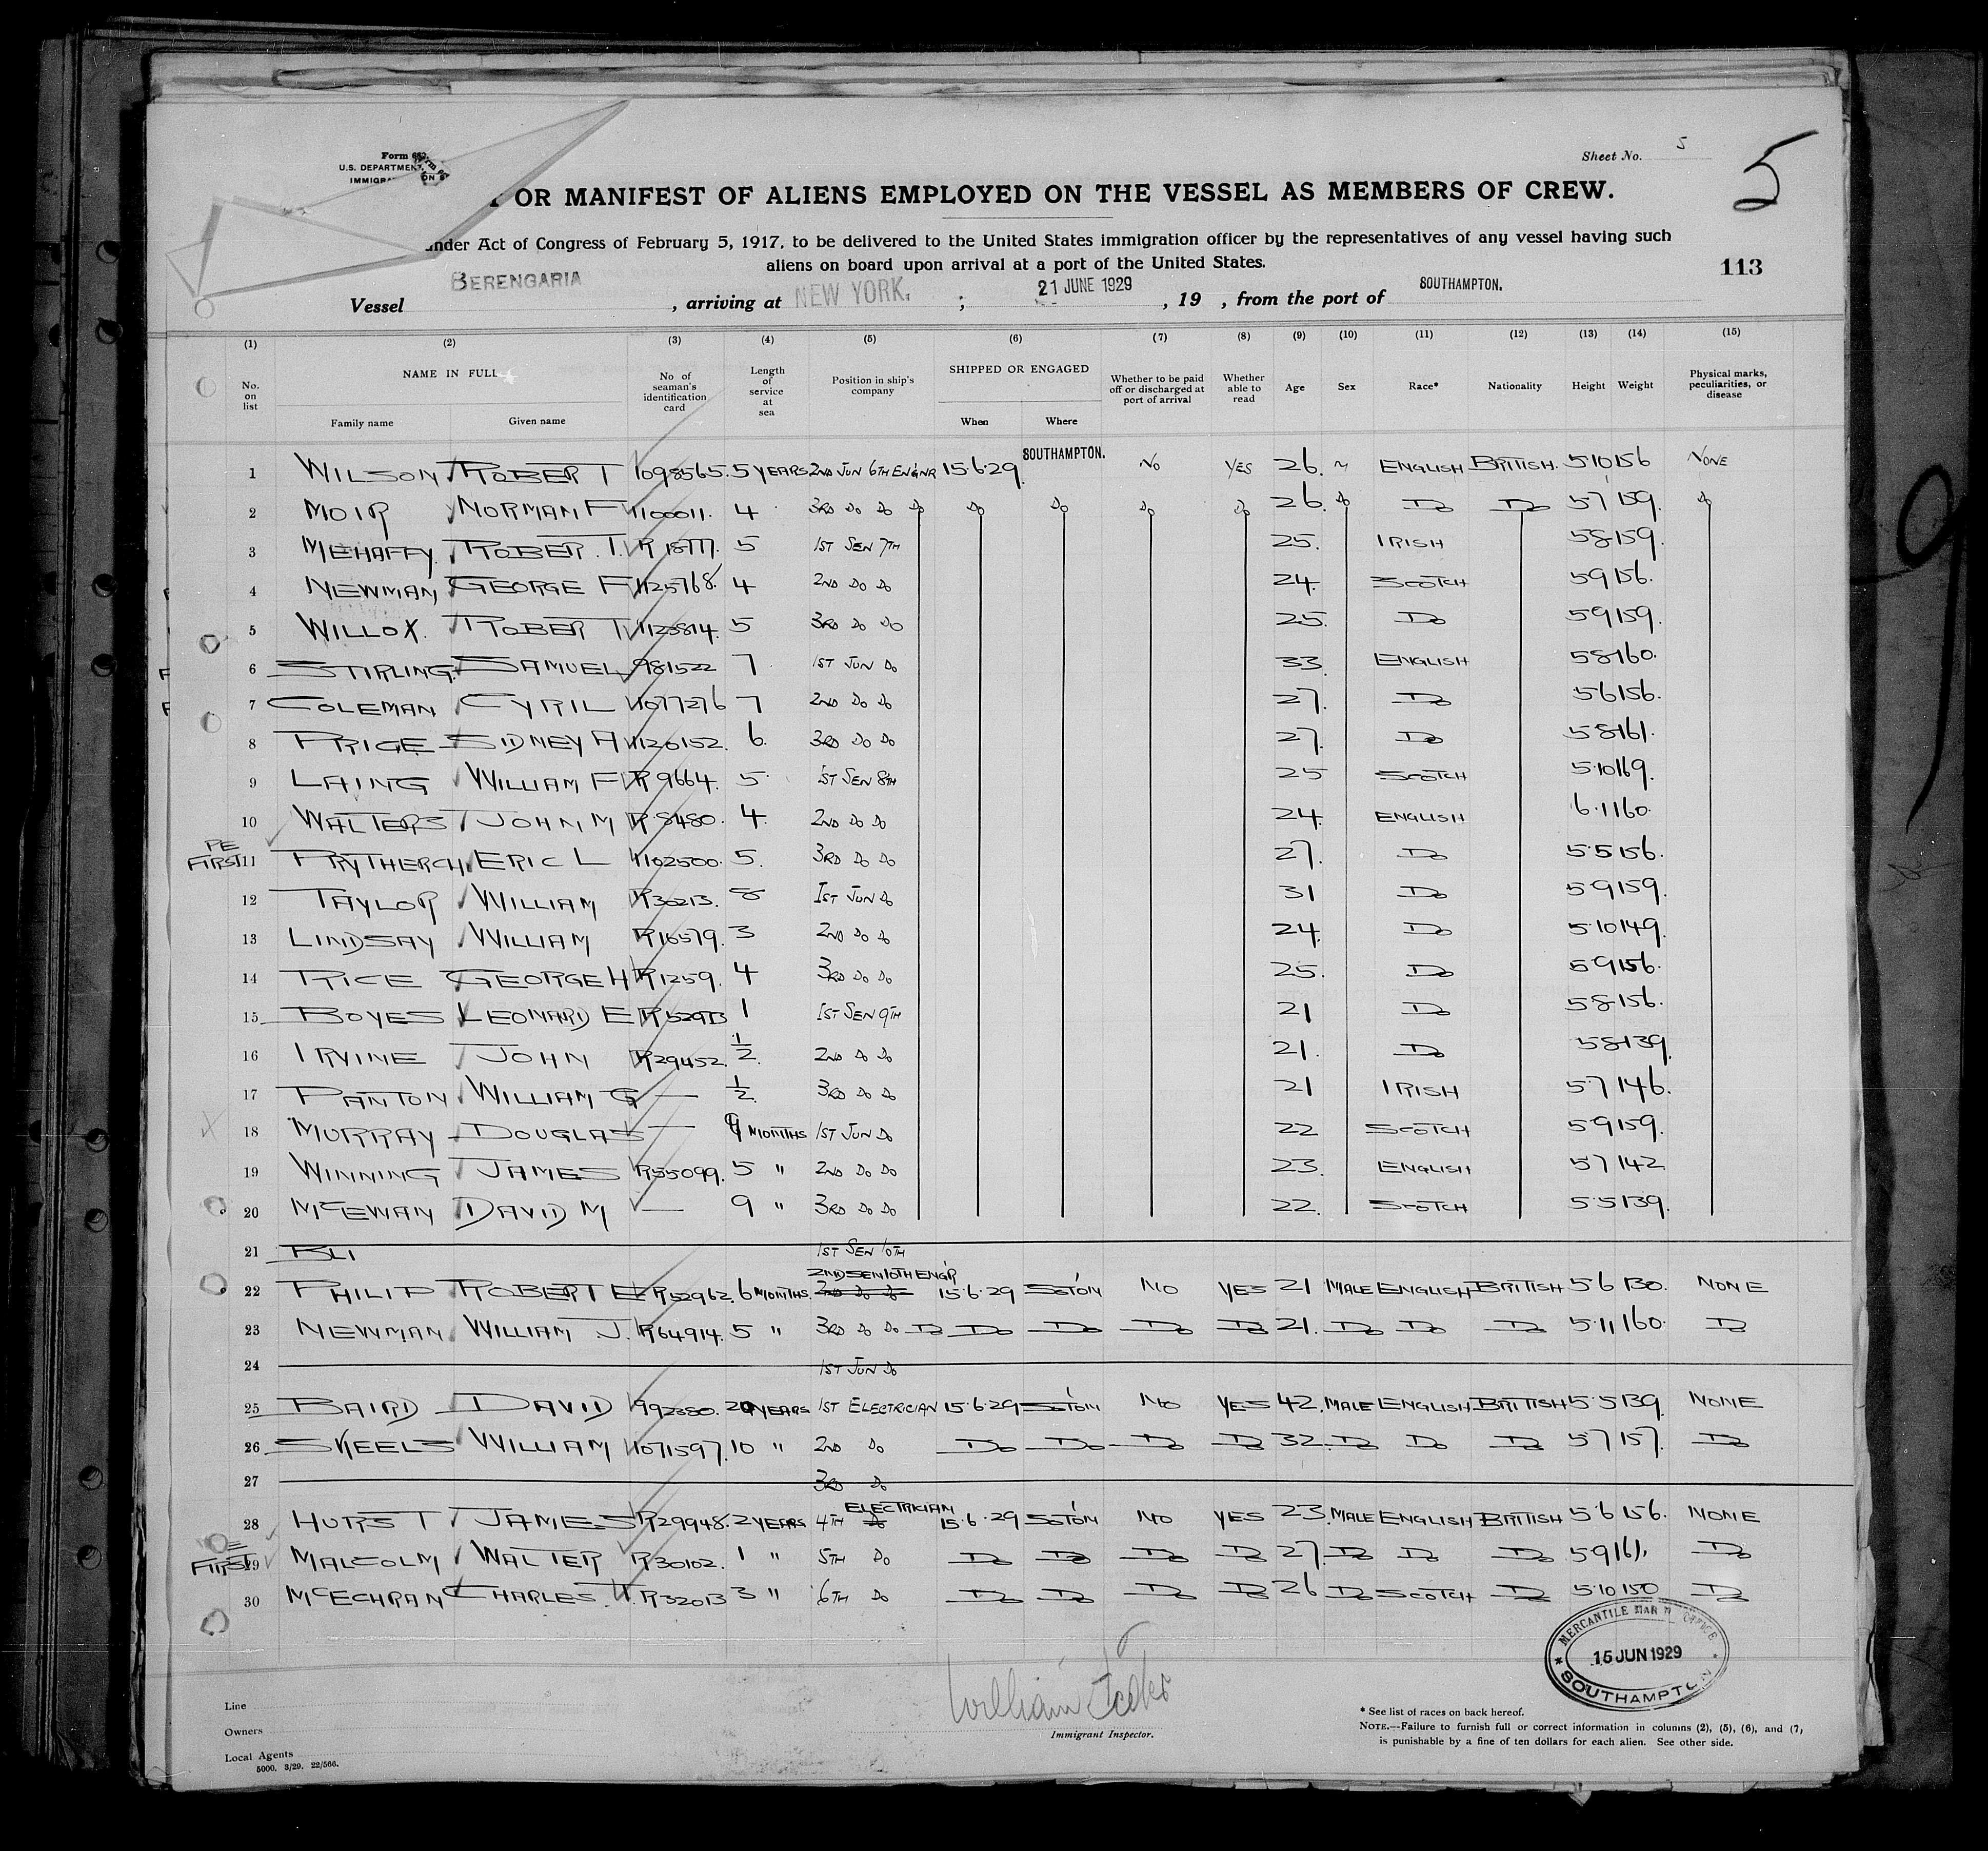 Sheet No. 5
5
Form 
U.S. DEPARTMENT
IMMIGRA
OR MANIFEST OF ALIENS EMPLOYED ON THE VESSEL AS MEMBERS OF CREW.
under Act of Congress of February 5, 1917, to be delivered to the United States immigration officer by the representatives of any vessel having such
aliens on board upon arrival at a port of the United States.
113
Vessel BERENGARIA, arriving at NEW YORK. ; 21 JUNE 1929, 19 , from the port of SOUTHAMPTON.
(1) (2) (3) (4) (5) (6) (7) (8) (9) (10) (11) (12) (13) (14) (15)
No. on list NAME IN FULL Family name Given name No of seaman's identification card Length of service at sea Position in ship's company SHIPPED OR ENGAGED When Where Whether to be paid off or discharged at port of arrival Whether able to read Age Sex Race* Nationality Height Weight Physical marks, peculiarities, or disease
1 WILSON ROBERT 1098565. 5 YEARS 2ND JUN 6TH ENGNR 15.6.29 SOUTHAMPTON. NO YES 26. M ENGLISH BRITISH. 5.10 156 NONE
2 MOIR NORMAN F 1100011. 4 3RD DO DO DO DO DO DO DO 26. DO DO DO 5 7 159. DO
3 MEHAFFY. ROBER. T. R 18777. 5 1ST SEN 7TH 25. IRISH 5 8 159.
4 NEWMAN GEORGE F 1125768. 4 2ND DO DO 24. SCOTCH 5 9 156.
5 WILLOX. ROBERT 1125814. 5 3RD DO DO 25. DO 5 9 159.
6 STIRLING. SAMUEL 981522 7 1ST JUN DO 33 ENGLISH 5 8 160.
7 COLEMAN CYRIL 1077276 7 2ND DO DO 27. DO 5 6 156.
8 PRICE SIDNEY A 1120152. 6. 3RD DO DO 27. DO 5 8 161.
9 LAING WILLIAM F R 9664. 5. 1ST SEN 8TH 25 SCOTCH 5.10 169.
10 WALTERS JOHN M R 8480. 4. 2ND DO DO 24. ENGLISH 6.1 160.
PE FIRST 11 PRYTHERCH ERIC L 1102500. 5. 3RD DO DO 27. DO 5.5 156.
12 TAYLOR WILLIAM R30213. 8 1ST JUN DO 31 DO 5 9 159.
13 LINDSAY WILLIAM R16579. 3 2ND DO DO 24. DO 5.10 149.
14 RICE GEORGE H R1259. 4 3RD DO DO 25. DO 5 9 156.
15 BOYES LEONARD E R 1 1ST SEN 9TH 21 DO 5 8 156.
16 IRVINE JOHN R29452. 1/2. 2ND DO DO 21. DO 5 8 139.
17 PANTON WILLIAM G — 1/2. 3RD DO DO 21 IRISH 5 7 146.
18 MURRAY DOUGLAS — 9 MONTHS 1ST JUN DO 22 SCOTCH 5 9 159.
19 WINNING JAMES R55099. 5 " 2ND DO DO 23. ENGLISH 5 7 142
20 MCEWAN DAVID M — 9 " 3RD DO DO 22. SCOTCH 5.5 139.
21 BLI 1ST SEN 10TH
2ND SEN 10TH ENGR
22 PHILIP ROBERT E R52962. 6 MONTHS. 2ND DO DO 15.6.29 SO'TON NO YES 21 MALE ENGLISH BRITISH 5 6 130. NONE
23 NEWMAN WILLIAM J. R64914. 5 " 3RD DO DO DO DO DO DO DO 21. DO DO DO 5.11 160. DO
24 1ST JUN DO
25 BAIRD DAVID 992380. 20 YEARS 1ST ELECTRICIAN 15.6.29 SO'TON NO YES 42. MALE ENGLISH BRITISH 5.5 139 NONE
26 SKEELS WILLIAM 1071597. 10 " 2ND DO DO DO DO DO 32. DO DO DO 5 7 157. DO
27 3RD DO
ELECTRICIAN
28 HURST JAMES R29948. 2 YEARS 4TH DO 15.6.29 SO'TON NO YES 23. MALE ENGLISH BRITISH 5.6 156. NONE
FIRST 29 MALCOLM WALTER R30102. 1 " 5TH DO DO DO DO DO 27. DO DO DO 5 9 161. DO
30 MCECHRAN CHARLES. W. R32013 3 " 6TH DO DO DO DO DO 26 DO SCOTCH DO 5.10 150 DO
MERCANTILE MAR OFFICE
15 JUN 1929
SOUTHAMPTON
Line
Owners
Local Agents
5000. 3/29. 22/566.
William
Immigrant Inspector.
* See list of races on back hereof.
NOTE.—Failure to furnish full or correct information in columns (2), (5), (6), and (7),
is punishable by a fine of ten dollars for each alien. See other side.